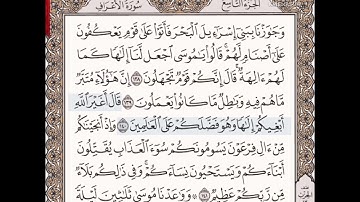 سورة الأعراف الجزء التاسع
وَجَٰوَزْنَا بِبَنِىٓ إِسْرَٰٓءِيلَ ٱلْبَحْرَ فَأَتَوْا۟ عَلَىٰ قَوْمٍ يَعْكُفُونَ
عَلَىٰٓ أَصْنَامٍ لَّهُمْ ۚ قَالُوا۟ يَٰمُوسَى ٱجْعَل لَّنَآ إِلَٰهًا كَمَا
لَهُمْ ءَالِهَةٌ ۚ قَالَ إِنَّكُمْ قَوْمٌ تَجْهَلُونَ ١٣٨ إِنَّ هَٰٓؤُلَآءِ مُتَبَّرٌ
مَّا هُمْ فِيهِ وَبَٰطِلٌ مَّا كَانُوا۟ يَعْمَلُونَ ١٣٩ قَالَ أَغَيْرَ ٱللَّهِ
أَبْغِيكُمْ إِلَٰهًا وَهُوَ فَضَّلَكُمْ عَلَى ٱلْعَٰلَمِينَ ١٤٠ وَإِذْ أَنجَيْنَٰكُم
مِّنْ ءَالِ فِرْعَوْنَ يَسُومُونَكُمْ سُوٓءَ ٱلْعَذَابِ ۖ يُقَتِّلُونَ
أَبْنَآءَكُمْ وَيَسْتَحْيُونَ نِسَآءَكُمْ ۚ وَفِى ذَٰلِكُم بَلَآءٌ
مِّن رَّبِّكُمْ عَظِيمٌ ١٤١ ۞ وَوَٰعَدْنَا مُوسَىٰ ثَلَٰثِينَ لَيْلَةً